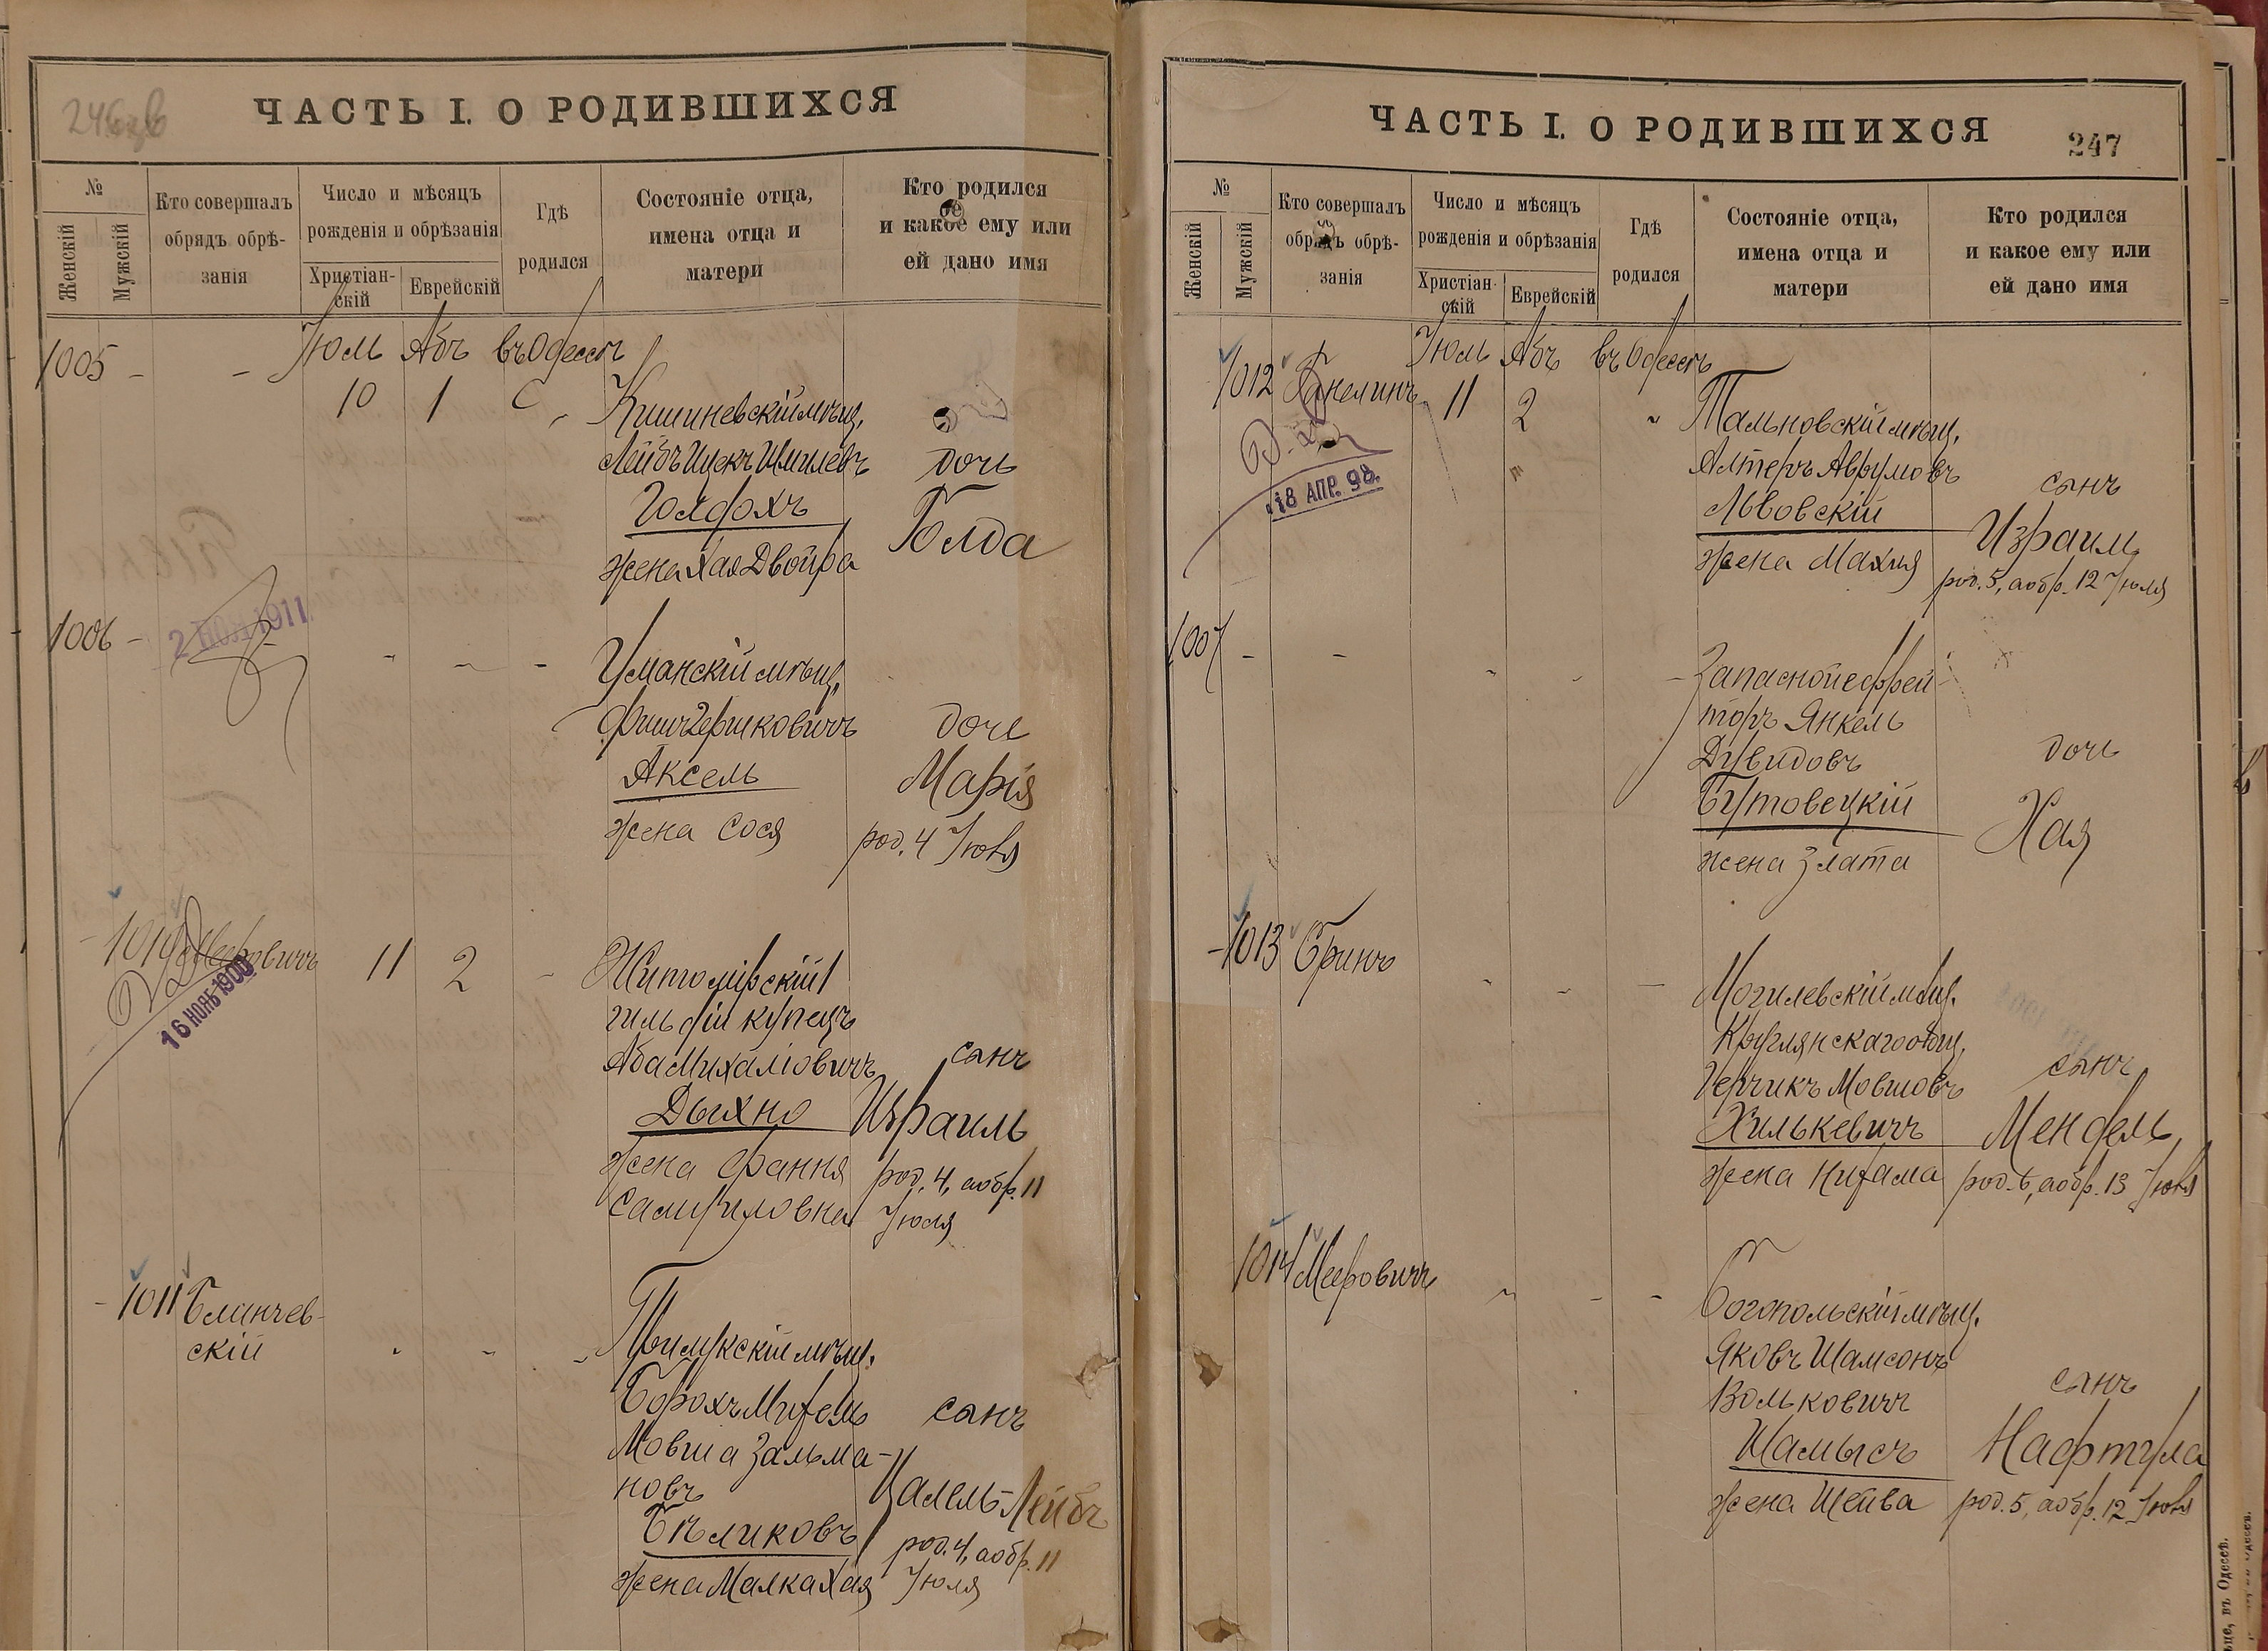 246об
ЧАСТЬ I. О РОДИВШИХСЯ
№
Женскій
Мужскій
Кто совершалъ
обрядъ обрѣ-
занія
Число и мѣсяцъ
рожденія и обрѣзанія
Христіан-
скій
Еврейскій
Гдѣ
родился
Состояніе отца,
имена отца и
матери
Кто родился
и какое ему или
ей дано имя
1005 - - Іюль Абъ въ Одессѣ
10 1
Кишиневскій мѣщ.
Лейбъ Ицекъ Шмилевъ дочь
Голдфохъ Голда
жена Хая Двойра
1006 -
2 НОЯ 1911
Уманскій мѣщ.
Фишъ Гершковичъ дочь
Аксель Марія
жена Сося род. 4 Іюля
1010 Меировичъ 11 2
16 НОЯБ 1900
Житомірскій 1
гильдіи купецъ
Аба Михаліовичъ сынъ
Дыхно Израиль
жена Фання род. 4, а обр. 11
Самуиловна Іюля
1011 Блинчев-
скій
мѣщ.
Борохъ сынъ
Мовша Зальма-
новъ Цалель-Лейбъ
Бѣликовъ род. 4, а обр. 11
жена Малка Хая Іюля
ЧАСТЬ I. О РОДИВШИХСЯ
247
№
Женскій
Мужскій
Кто совершалъ
обрядъ обрѣ-
занія
Число и мѣсяцъ
рожденія и обрѣзанія
Христіан-
скій
Еврейскій
Гдѣ
родился
Состояніе отца,
имена отца и
матери
Кто родился
и какое ему или
ей дано имя
Іюль Абъ въ Одессѣ
1012 11 2
18 АПР. 98.
Тальновскій мѣщ.
Алтеръ Аврумовъ сынъ
Львовскій Израиль
жена Махля род. 5, а обр. 12 Іюля
1007 - -
Запасной ефрей-
торъ Янкель
Дувидовъ дочь
Бутовецкій Хая
жена Злата
1013 Гринъ
Могилевскій мѣщ.
Круглянскаго общ.
Герчикъ Мовшовъ сынъ
Хилькевичъ Мендель
жена Нихама род. 6, а обр. 13 Іюля
1014 Меировичъ
Богопольскій мѣщ.
Яковъ Шамсонъ
Вольковичъ сынъ
Шамысъ Нафтула
жена Шейва род. 5, а обр. 12 Іюля